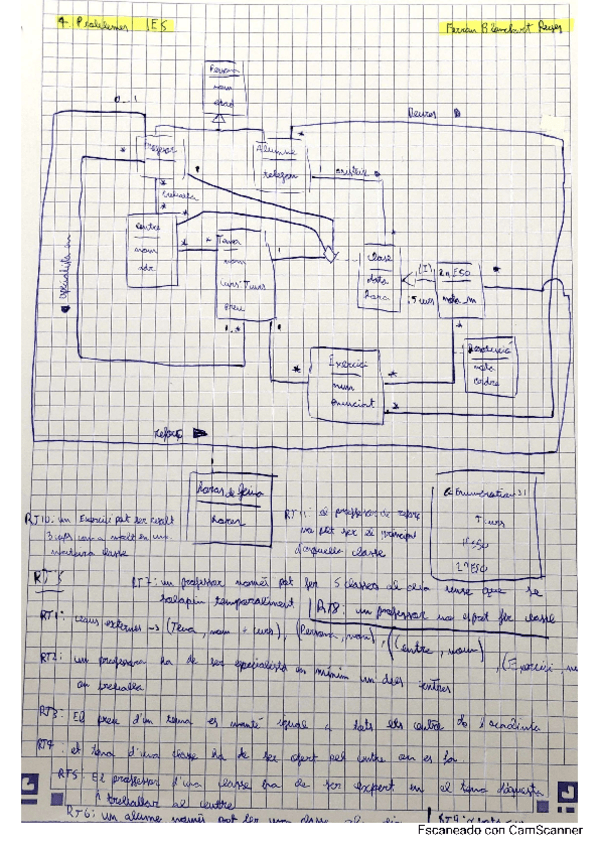 4 Problemes IES
Ferran Blanchart Reyes
Persona
nom
edat
0..1
Deures
Professor
Alumne
telefon
*
*
assisteix
treballa
*
especialista en
Centre
nom
*
*
Tema
nom
curs: Tcurs
preu
1
1..*
Classe
data
hora
(I)
2n ESO
nota_m
*
Exercici
num
enunciat
*
*
Resolució
nota
ordre
reforç
Horas de feina
horas
<<Enumeration>>
Tcurs
1r ESO
2n ESO
RT10: un Exercici pot ser resolt
3 cops com a molt en una
mateixa classe
RT11: el professor de reforç
no pot ser el principal
d'aquella classe
RT's
RT7: un professor només pot fer 5 classes al dia sense que se
solapin temporalment
RT8: un professor no pot fer classe
RT1: claus externes -> (Tema, nom + curs), (Persona, nom), (Centre, nom), (Exercici, nu
RT2: un professor ha de ser especialista en mínim un dels centres
on treballa
RT3: El preu d'un tema es manté igual a tots els centre de l'acadèmia
RT4: el tema d'una classe ha de ser ofert pel centre on es fa
RT5: El professor d'una classe ha de ser expert en el tema d'aquesta
i treballar al centre
RT6: un alumne només pot fer una classe al dia
RT9:
Escaneado con CamScanner